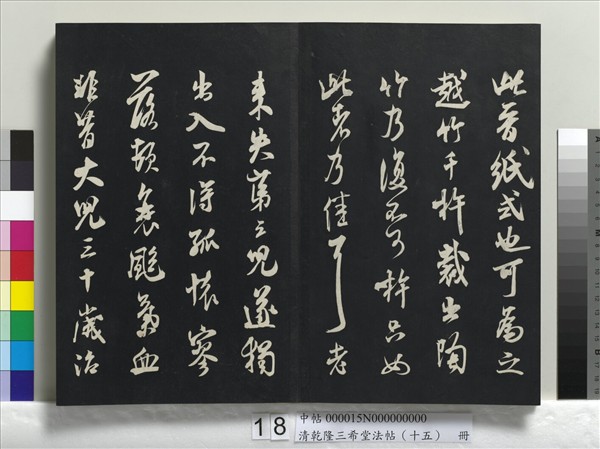 此昔紙式也可為之
越竹千杵裁出陶
竹乃復不可杵只如
此者乃佳耳老
来失第三兒遂獨
出入不得孤懷寥
落頓衰颯氣血
非昔大兒三十歲治
18
中帖 000015N000000000
清乾隆三希堂法帖(十五) 冊